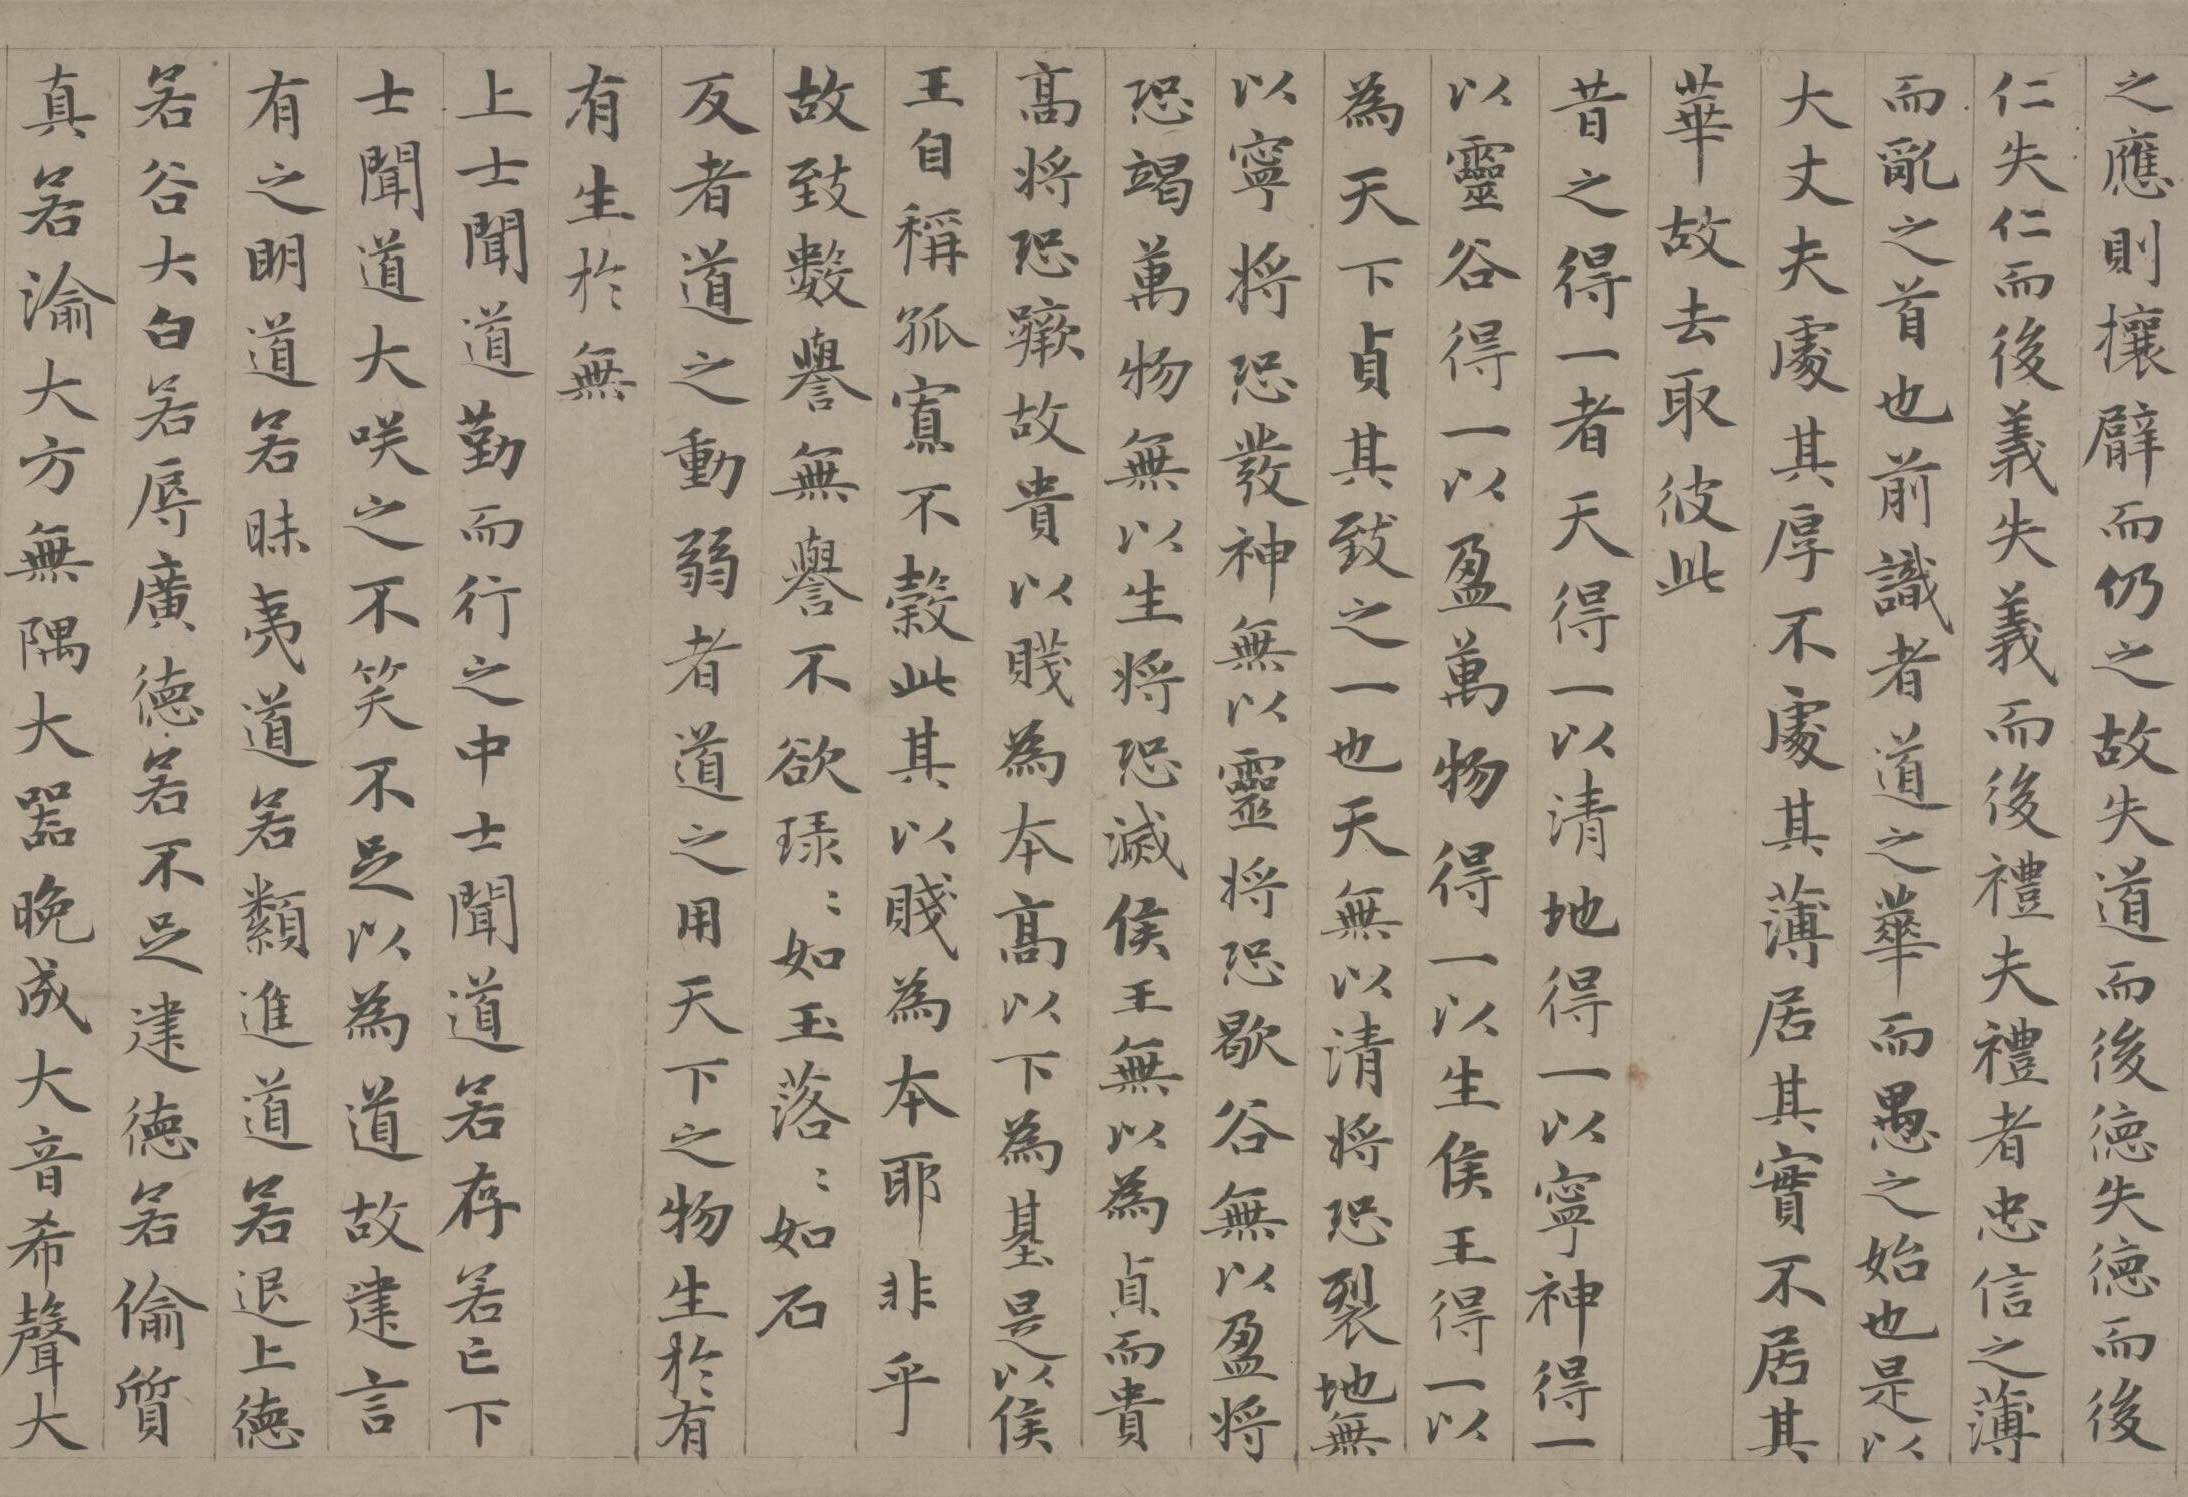 之應則攘臂而仍之故失道而後德失德而後
仁失仁而後義失義而後禮夫禮者忠信之薄
而亂之首也前識者道之華而愚之始也是以
大丈夫處其厚不處其薄居其實不居其
華故去取彼此
昔之得一者天得一以清地得一以寧神得一
以靈谷得一以盈萬物得一以生侯王得一以
為天下貞其致之一也天無以清將恐裂地無
以寧將恐發神無以靈將恐歇谷無以盈將
恐竭萬物無以生將恐滅侯王無以為貞而貴
高將恐蹶故貴以賤為本高以下為基是以侯
王自稱孤寡不穀此其以賤為本耶非乎
故致數譽無譽不欲琭〻如玉落〻如石
反者道之動弱者道之用天下之物生於有
有生於無
上士聞道勤而行之中士聞道若存若亡下
士聞道大咲之不笑不足以為道故建言
有之明道若昧夷道若纇進道若退上德
若谷大白若辱廣德若不足建德若偷質
真若渝大方無隅大器晚成大音希聲大